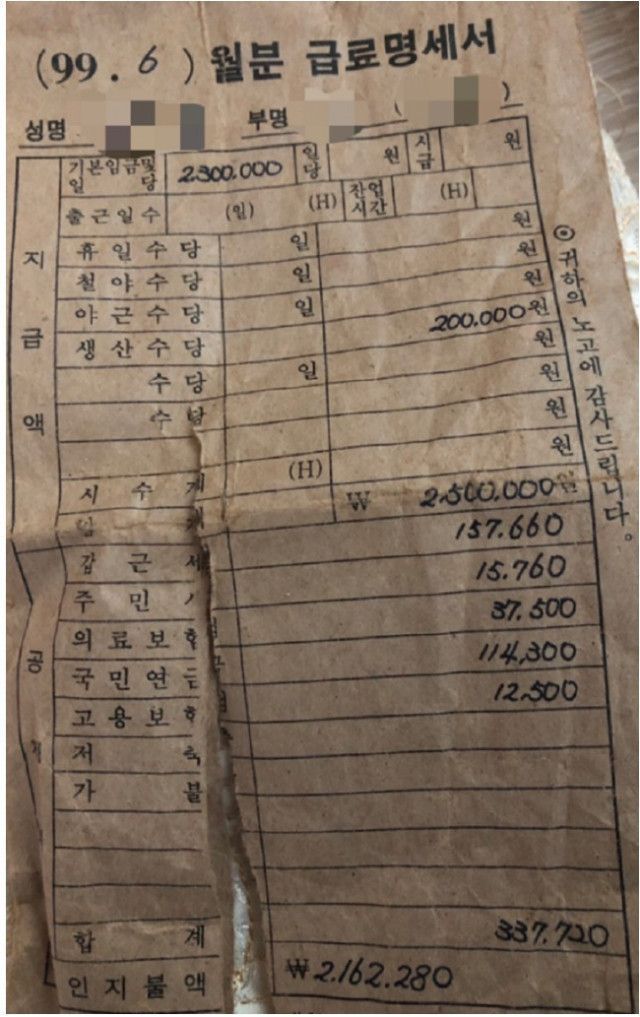 (99. 6 ) 월분 급료명세서
성명 부명 ( )
기본임금및 일당 2.300.000 일당 원 시급 원
출근일수 (일) (H) 잔업시간 (H)
지급액
휴일수당 일 원
철야수당 일 원
야근수당 일 원
생산수당 200.000원
수당 일 원
수당 원
원
(H) 원
시수계 ₩ 2.500.000원
공
갑근세 157.660
주민 15.760
의료보험 37.500
국민연금 114,300
고용보험 12.500
저축
가불
합계 337.720
인지불액 ₩2.162.280
◎ 귀하의 노고에 감사드립니다。